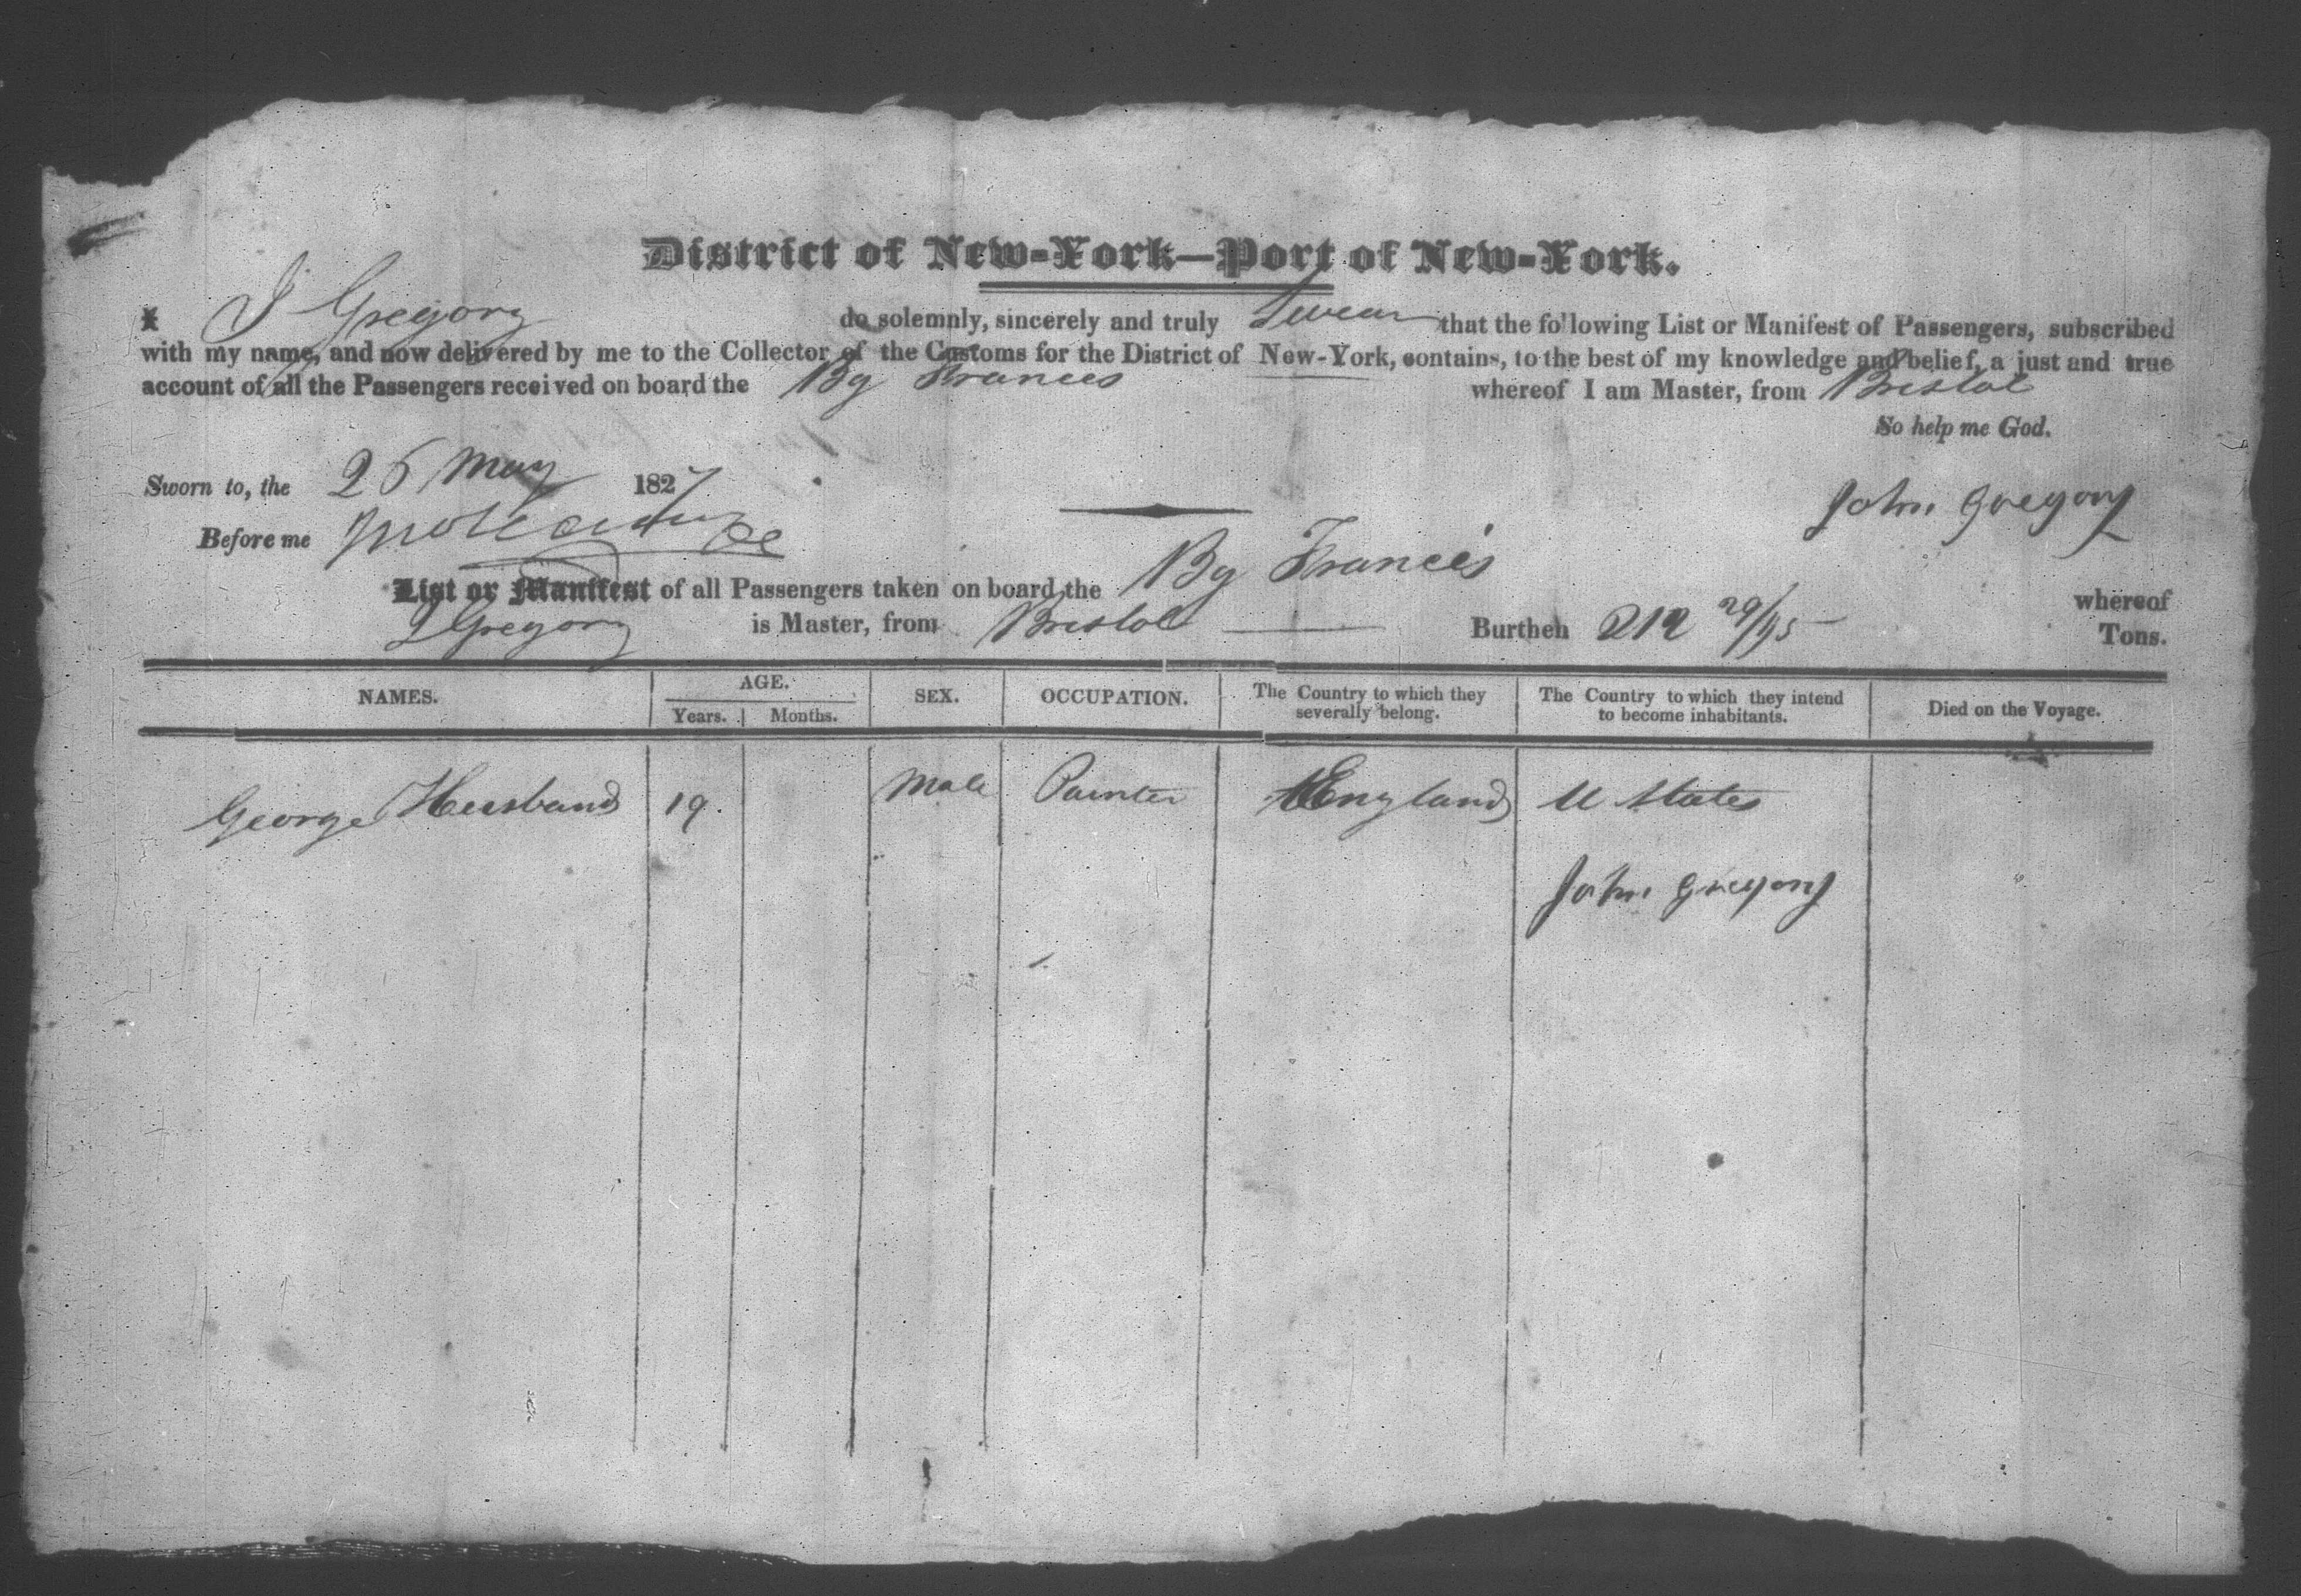 District of New-York—Port of New-York.
I J Gregory do solemnly, sincerely and truly Swear that the following List or Manifest of Passengers, subscribed
with my name, and now delivered by me to the Collector of the Customs for the District of New-York, contains, to the best of my knowledge and belief, a just and true
account of all the Passengers received on board the Bg Frances whereof I am Master, from Bristol
So help me God.
Sworn to, the 26 May 1827
John Gregory
Before me
List or Manifest of all Passengers taken on board the Bg Francis whereof
J Gregory is Master, from Bristol Burthen 212 29/95 Tons.
NAMES. AGE. SEX. OCCUPATION. The Country to which they severally belong. The Country to which they intend to become inhabitants. Died on the Voyage.
Years. Months.
George Husband 19. Male Painter England U States
John Gregory